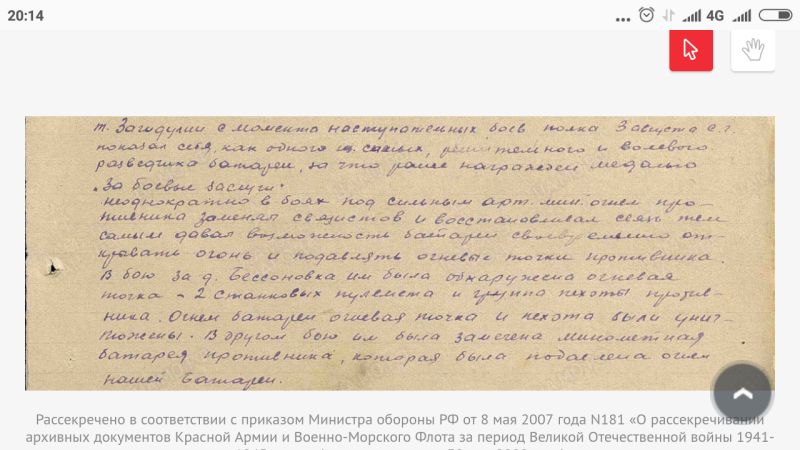 20:14
4G
т. Загидулин с момента наступательных боев полка 3 августа с.г.
показал себя, как одного из смелых, решительного и волевого
разведчика батареи, за что ранее награжден медалью
„За боевые заслуги".
Неоднократно в боях под сильным арт. мин. огнем про-
тивника заменял связистов и восстановливал связь тем
самым давая возможность батарее своевременно от-
крывать огонь и подавлять огневые точки противника.
В бою за д. Бессоновка им была обнаружена огневая
точка - 2 станковых пулемета и группа пехоты против-
ника. Огнем батареи огневая точка и пехота были унич-
тожены. В другом бою им была замечена минометная
батарея противника, которая была подавлена огнем
нашей батареи.
Рассекречено в соответствии с приказом Министра обороны РФ от 8 мая 2007 года N181 «О рассекречивании
архивных документов Красной Армии и Военно-Морского Флота за период Великой Отечественной войны 1941-